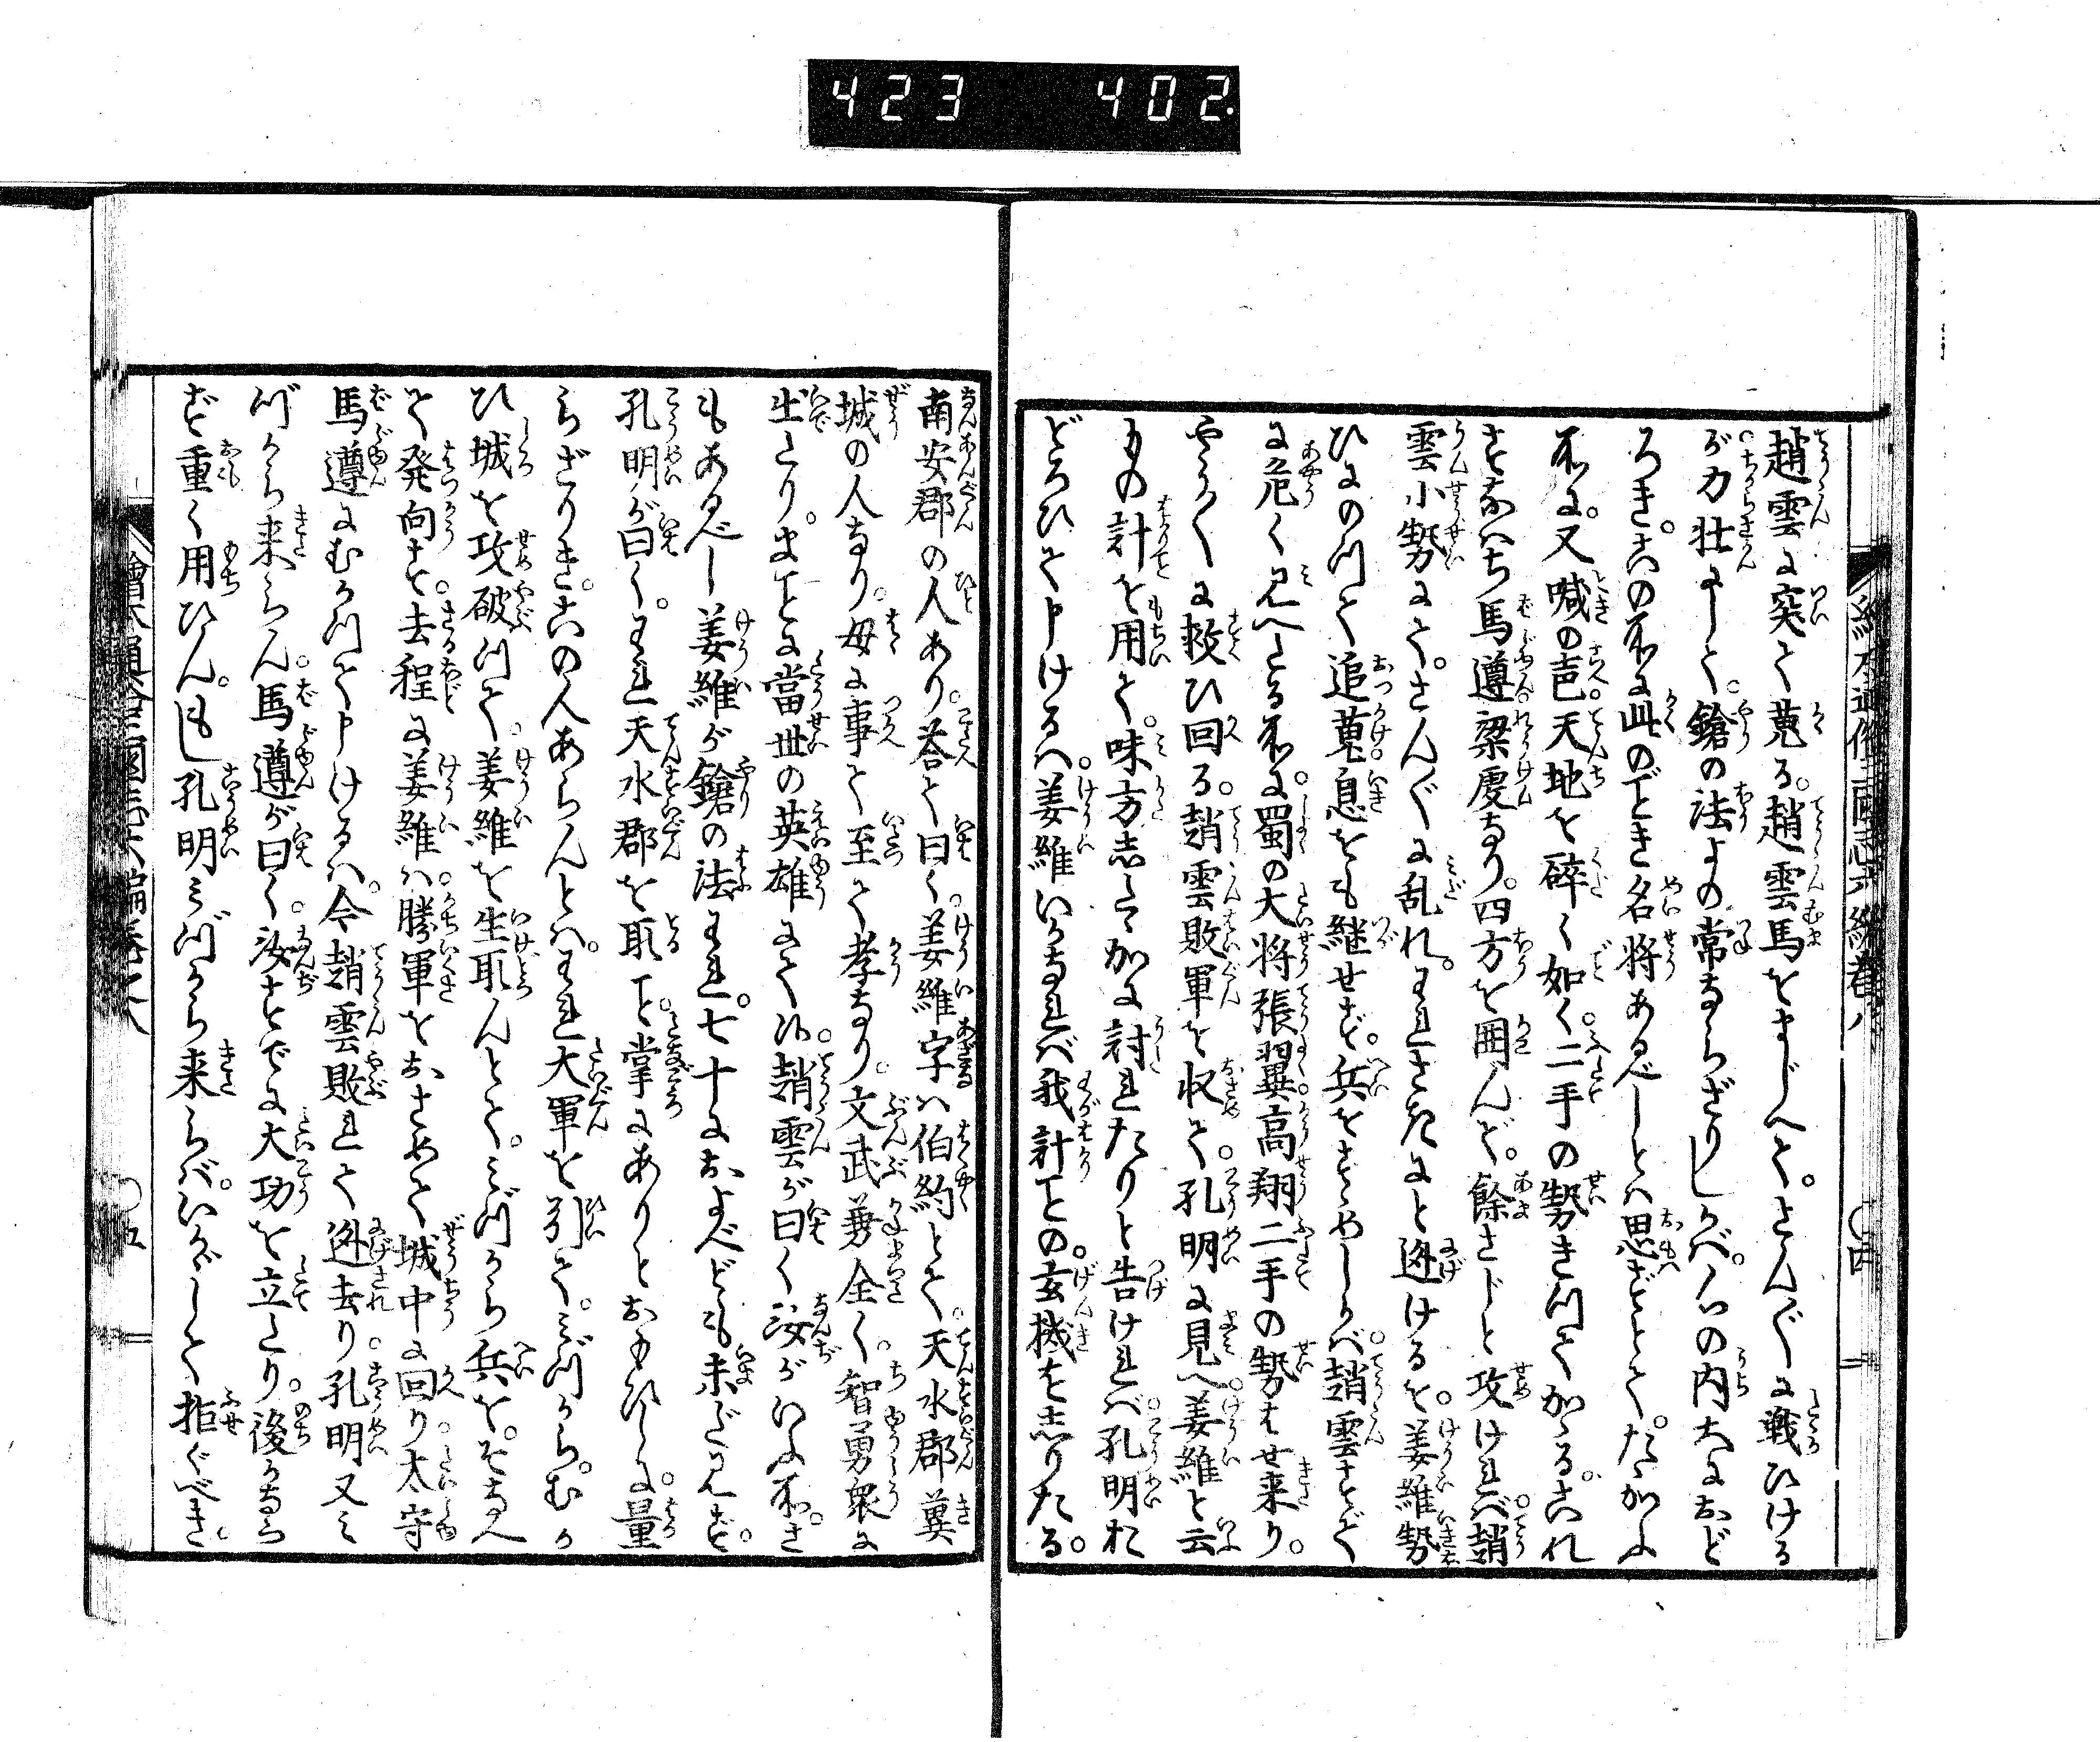 423 402
繪本通俗三國志六編巻八
〇四
趙雲に突て蒐る。趙雲馬をまじへて。さん〴〵に戦ひける
が力壮にして。鎗の法よの常ならざりしかば。心の内大におど
ろき。この所に此のごとき名将あるべしとは思ざとて。たゝかふ
所に。又喊の声。天地を砕く如く。二手の勢きつてかゝる。これ
すなはち馬遵。梁虔なり。四方を囲んで。餘さじと攻ければ。趙
雲小勢にて。さん〴〵に乱れ。われさきにと迯けるを。姜維勢
ひにのつて追蒐。息をも継せず。兵をすゝめしかば。趙雲すで
に危く見へたる所に。蜀の大将張翼。高翔二手の勢はせ来り。
やう〳〵に救ひ回る。趙雲敗軍を収て。孔明に見へ。姜維と云
もの計を用て。味方志たゝかに討れたりと告ければ。孔明お
どろひて申けるは。姜維いかなれば我計ことの。玄機を志りたる。
南安郡の人あり。荅て曰く。姜維字は伯約とて。天水郡。冀
城の人なり。母に事て至て孝なり。文武兼全く。智勇衆に
出たり。まことに當世の英雄にて候。趙雲が曰く汝がいふ所。さ
もあるべし姜維が鎗の法われ。七十におよべども未だ見ず。
孔明が曰く。われ天水郡を取こと。掌にありとおもひしに。量
らざりき。この人あらんとは。われ大軍を引て。みづから。むか
ひ城を攻破つて。姜維を生取んとて。みづから兵を。そなへ
て発向す。去程に姜維は。勝軍をおさめて城中に回り。太守
馬遵にむかつて申けるは。今趙雲敗れて迯去り。孔明又み
づから来らん。馬遵が曰く。汝すでに大功を立たり。後かなら
ず重く用ひん。もし孔明みづから来らば。いかゞして拒ぐべき
繪本通俗三國志六編巻之八
〇五